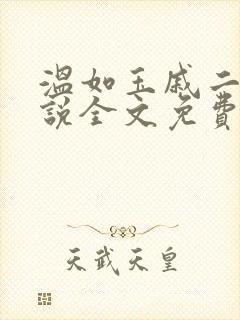 温如玉戚二
說全文免費
天武天皇